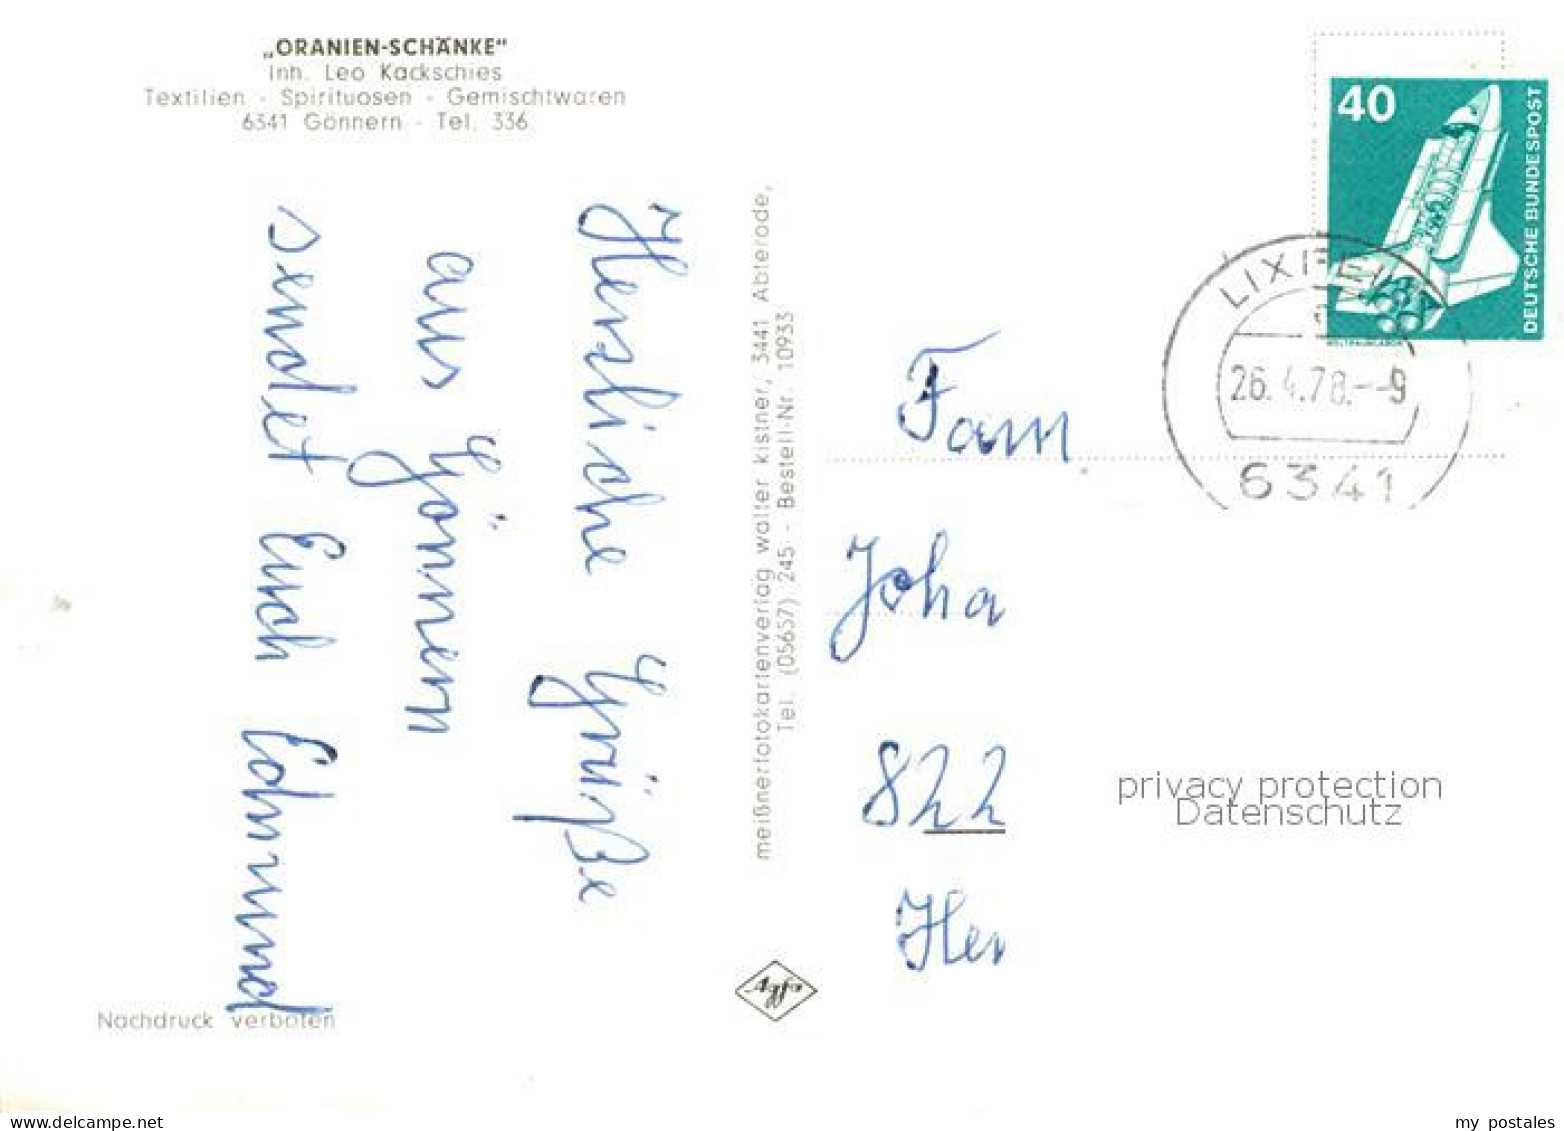 „ORANIEN-SCHÄNKE"
Inh. Leo Kackschies
Textilien - Spirituosen - Gemischtwaren
6341 Gönnern - Tel. 336
40
DEUTSCHE BUNDESPOST
WELTRAUMLABOR
LIXFELD
26.4.78.--9
6341
Herzliche Grüße
aus Gönnern
sendet Euch Edmund
meißnerfotokartenverlag walter kistner, 3441 Abterode,
Tel. (05657) 245 - Bestell-Nr. 10933
Fam
Joha
822
Her
privacy protection
Datenschutz
Agfa
Nachdruck verboten
www.delcampe.net
my_postales